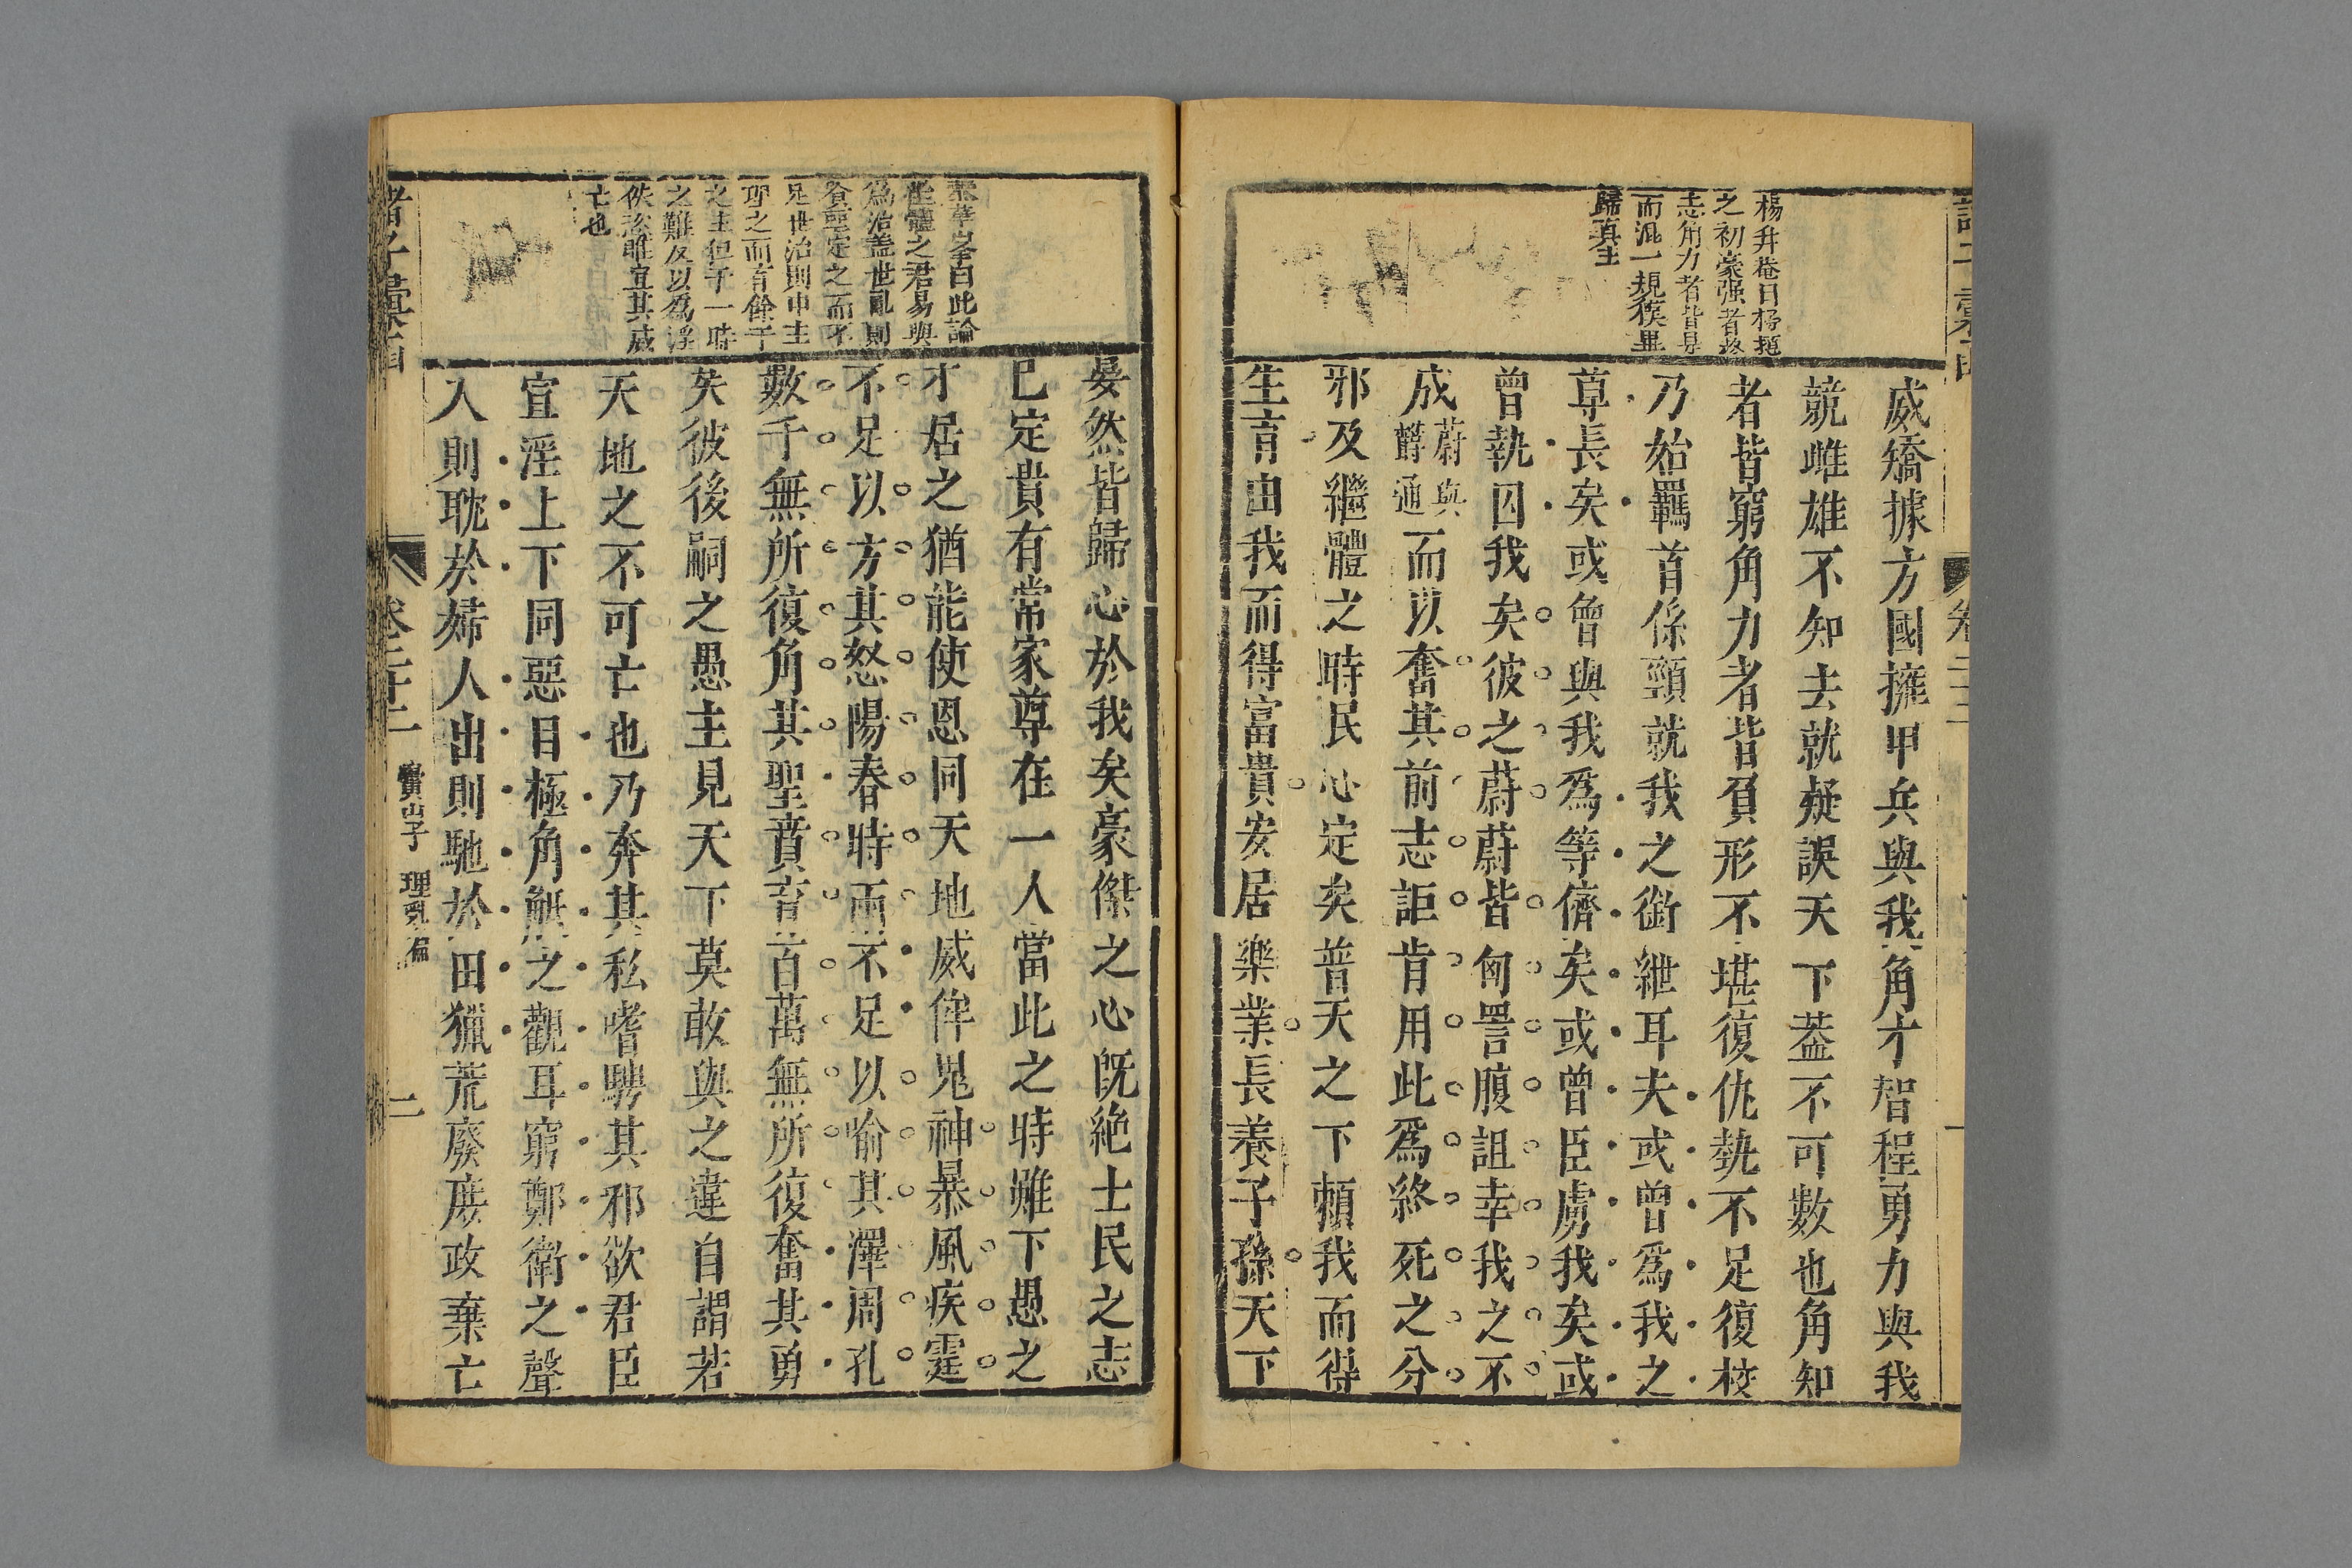 楊升菴曰揚摧
之初豪强者將
志角力者皆梟
而混一規模畢
歸真主
威矯據方國擁甲兵與我角才智程勇力與我
競雌雄不知去就疑誤天下葢不可數也角知
者皆窮角力者皆負形不堪復伉埶不足復校
乃始羈首係頸就我之銜紲耳夫或曾爲我之
尊長矣或曾與我爲等儕矣或曾臣虜我矣或
曾執囚我矣彼之蔚蔚皆匈詈腹詛幸我之不
成蔚與欝通而以奮其前志詎肯用此爲終死之分
邪及繼體之時民心定矣普天之下頼我而得
生育由我而得富貴安居樂業長養子孫天下
卷二十二
一
華峯曰此論
繼體之君易與
爲治葢世亂則
賢聖定之而不
足世治則中主
守之而有餘于
之主但于一時
之難反以爲淫
佚恣睢宜其滅
亡也
晏然皆歸心於我矣豪傑之心旣絶士民之志
已定貴有常家尊在一人當此之時雖下愚之
才居之猶能使恩同天地威侔鬼神暴風疾霆
不足以方其怒陽春時雨不足以喻其澤周孔
數千無所復角其聖賁育百萬無所復奮其勇
矣彼後嗣之愚主見天下莫敢與之違自謂若
天地之不可亡也乃奔其私嗜騁其邪欲君臣
宣淫上下同惡目極角觝之觀耳窮鄭衛之聲
入則耽於婦人出則馳於田獵荒廢庶政棄亡
諸子彙函
卷二十二
黌山子 理亂篇
二